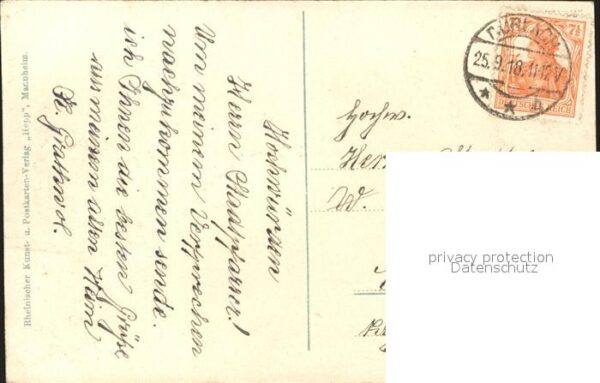 Hochwürden
Herrn Stadtpfarrer!
Um meinem Versprechen
nachzukommen sende
ich Ihnen die besten Grüße
aus meinem alten Heim
Rheinischer Kunst- u. Postkarten-Verlag „Hepp", Mannheim.
DURLACH
25.9.18.11-12V
7½
DEUTSCHES REICH
Hochw.
Herrn
W.
privacy protection
Datenschutz